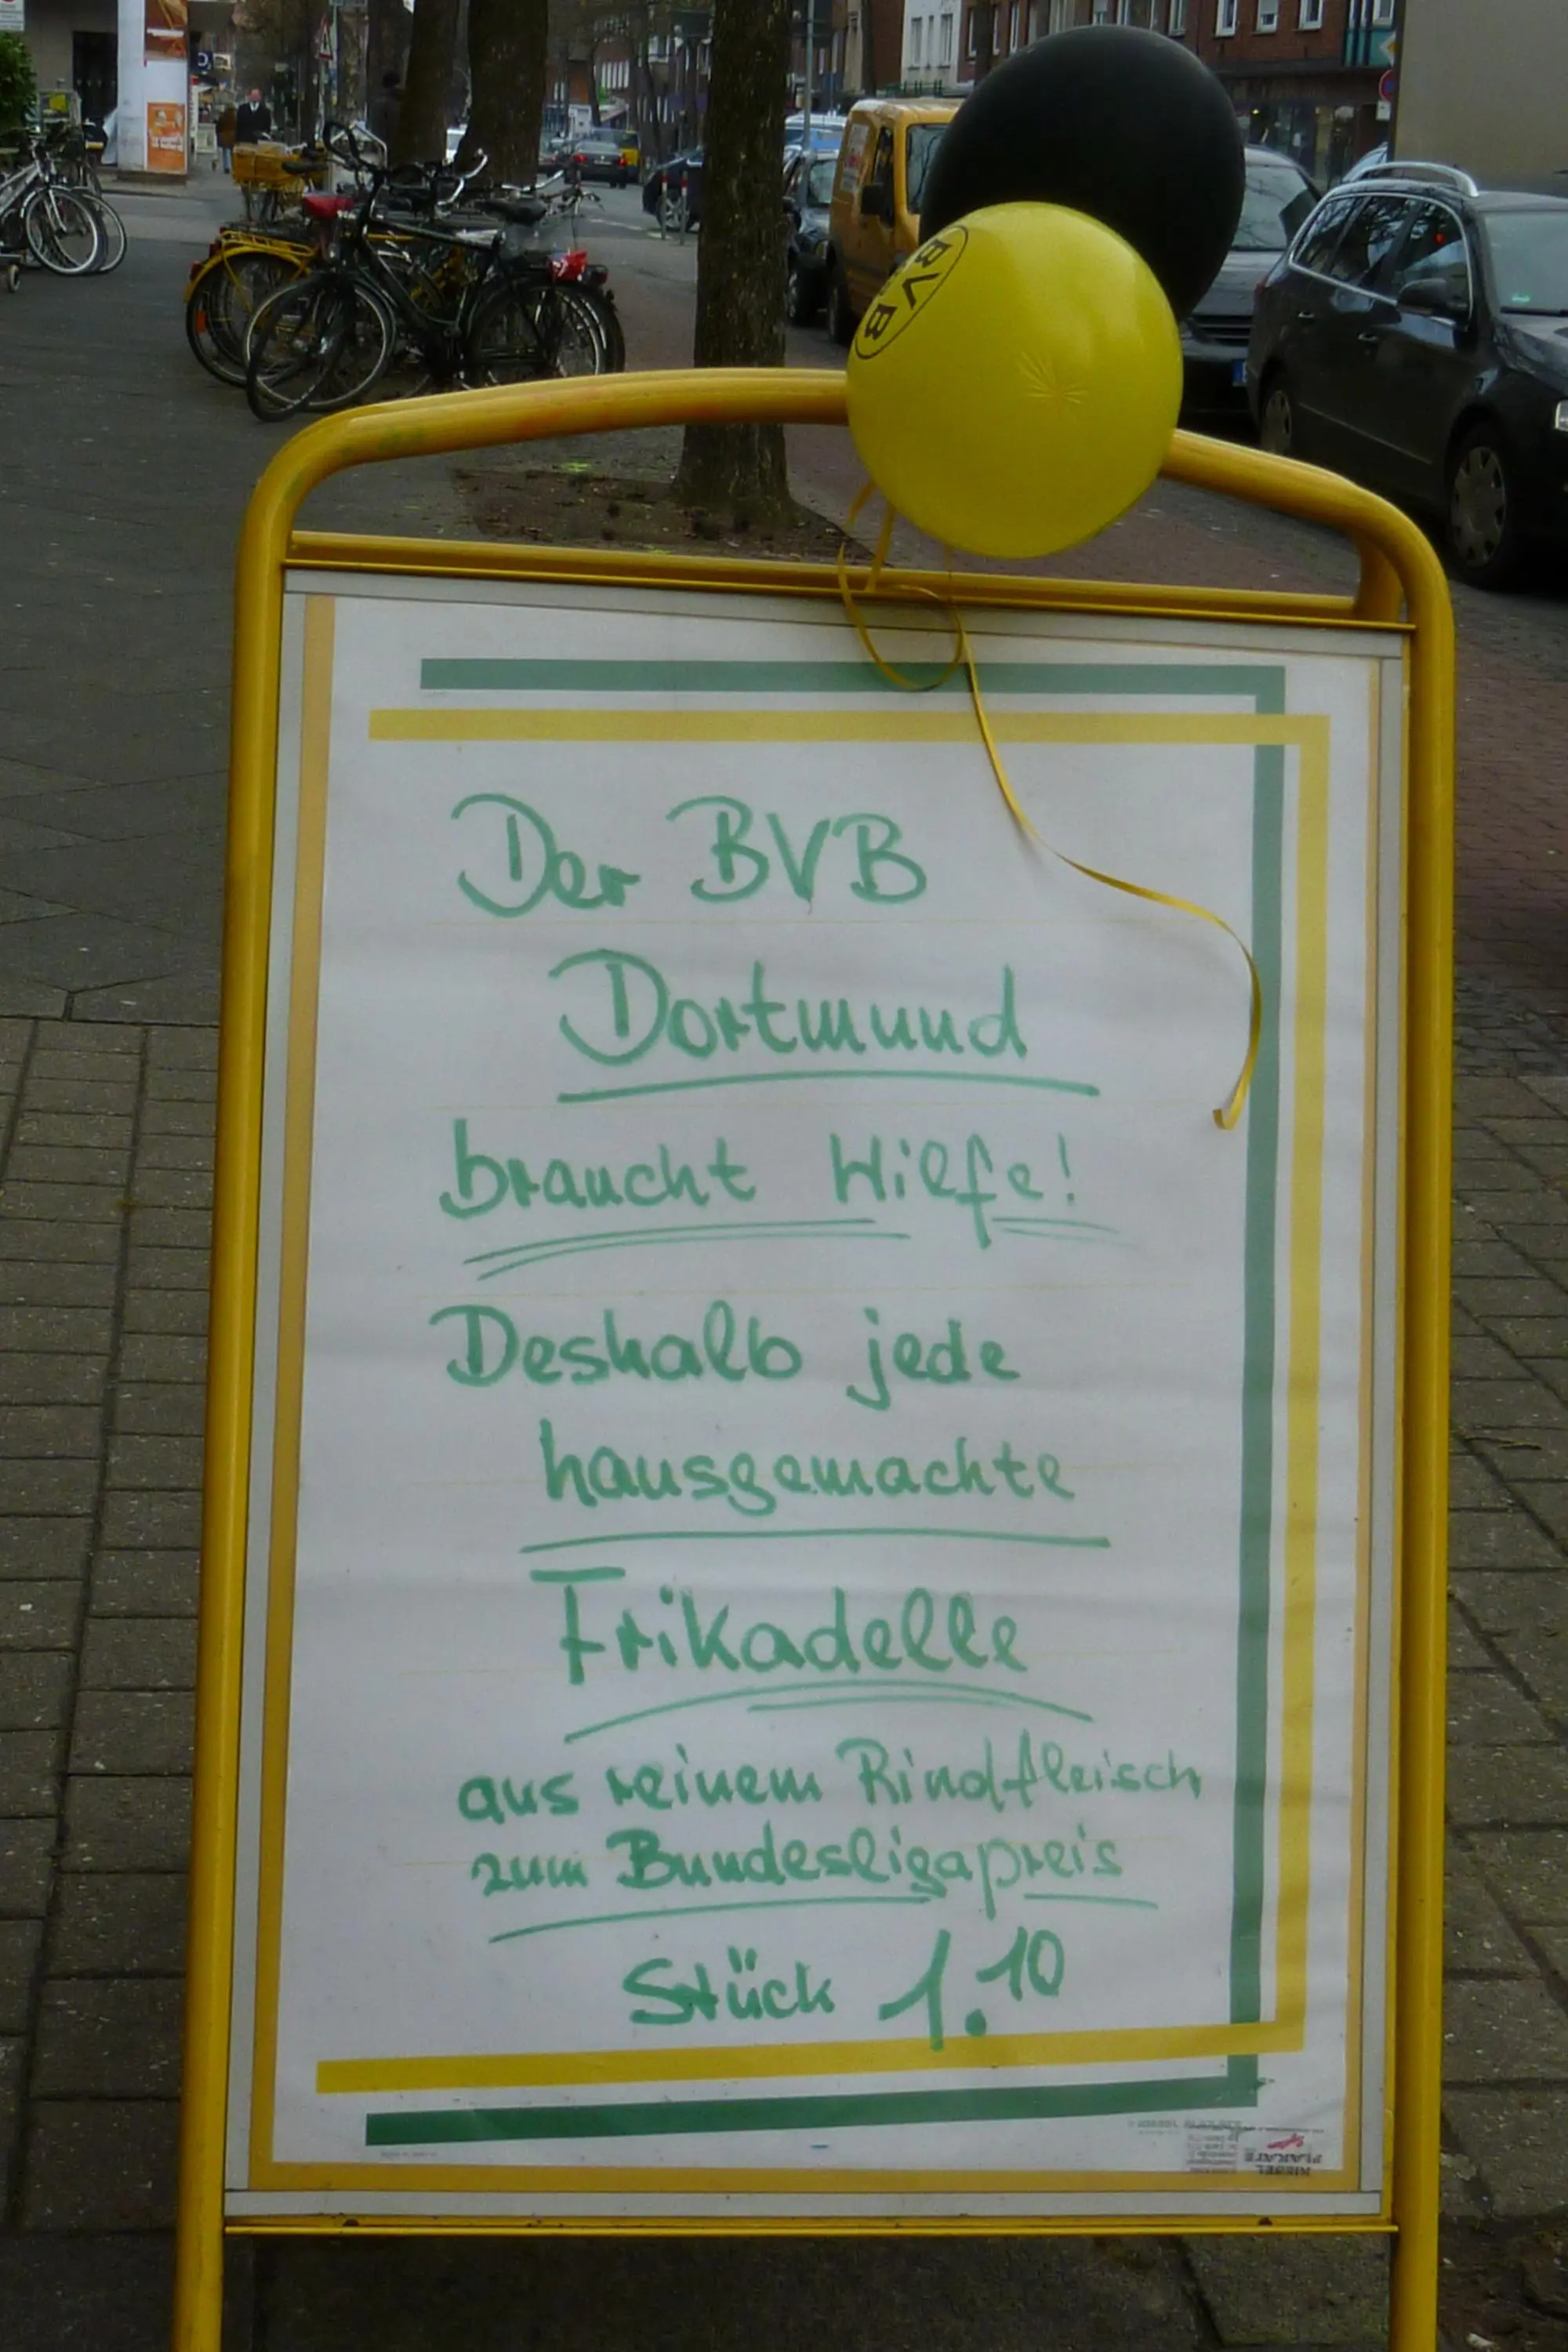 BVB
Der BVB
Dortmund
braucht Hilfe!
Deshalb jede
hausgemachte
Frikadelle
aus reinem Rindfleisch
zum Bundesligapreis
Stück 1.10